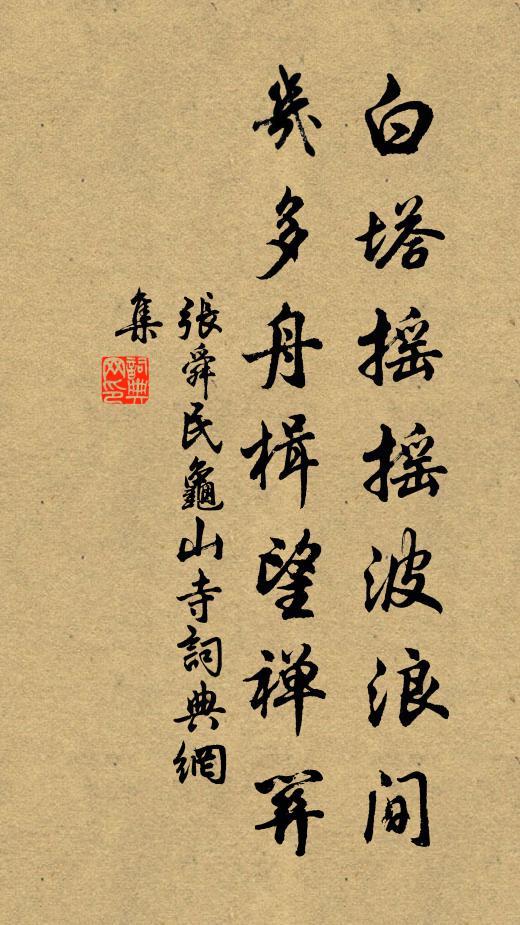 白塔摇摇波浪间
幾多舟楫望禅關
張舜民龜山寺詞典網
集
詞典
网印